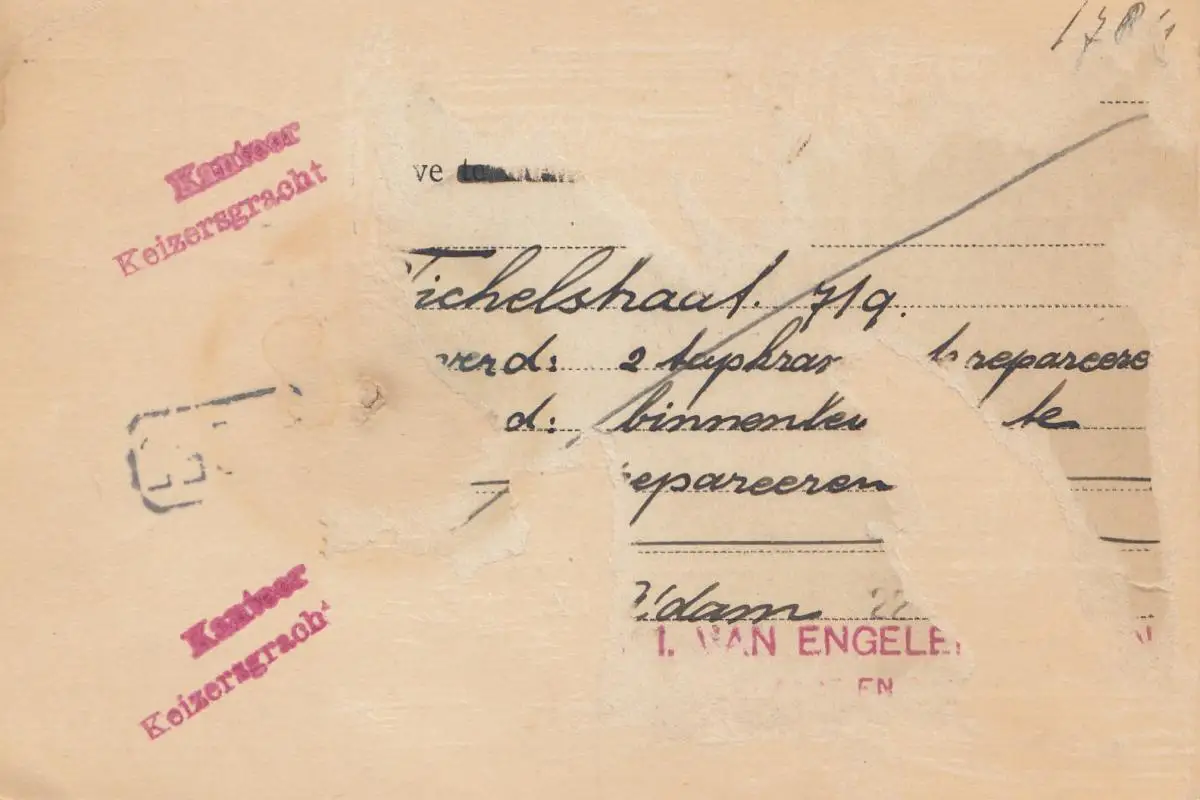 178
Kantoor
Keizersgracht
ve te
Tichelstraat. 719.
verd: 2 tapkra te repareere
d: binnenteu te
repareeren
A'dam 22
Kantoor
Keizersgrach
I. VAN ENGELE N
EN